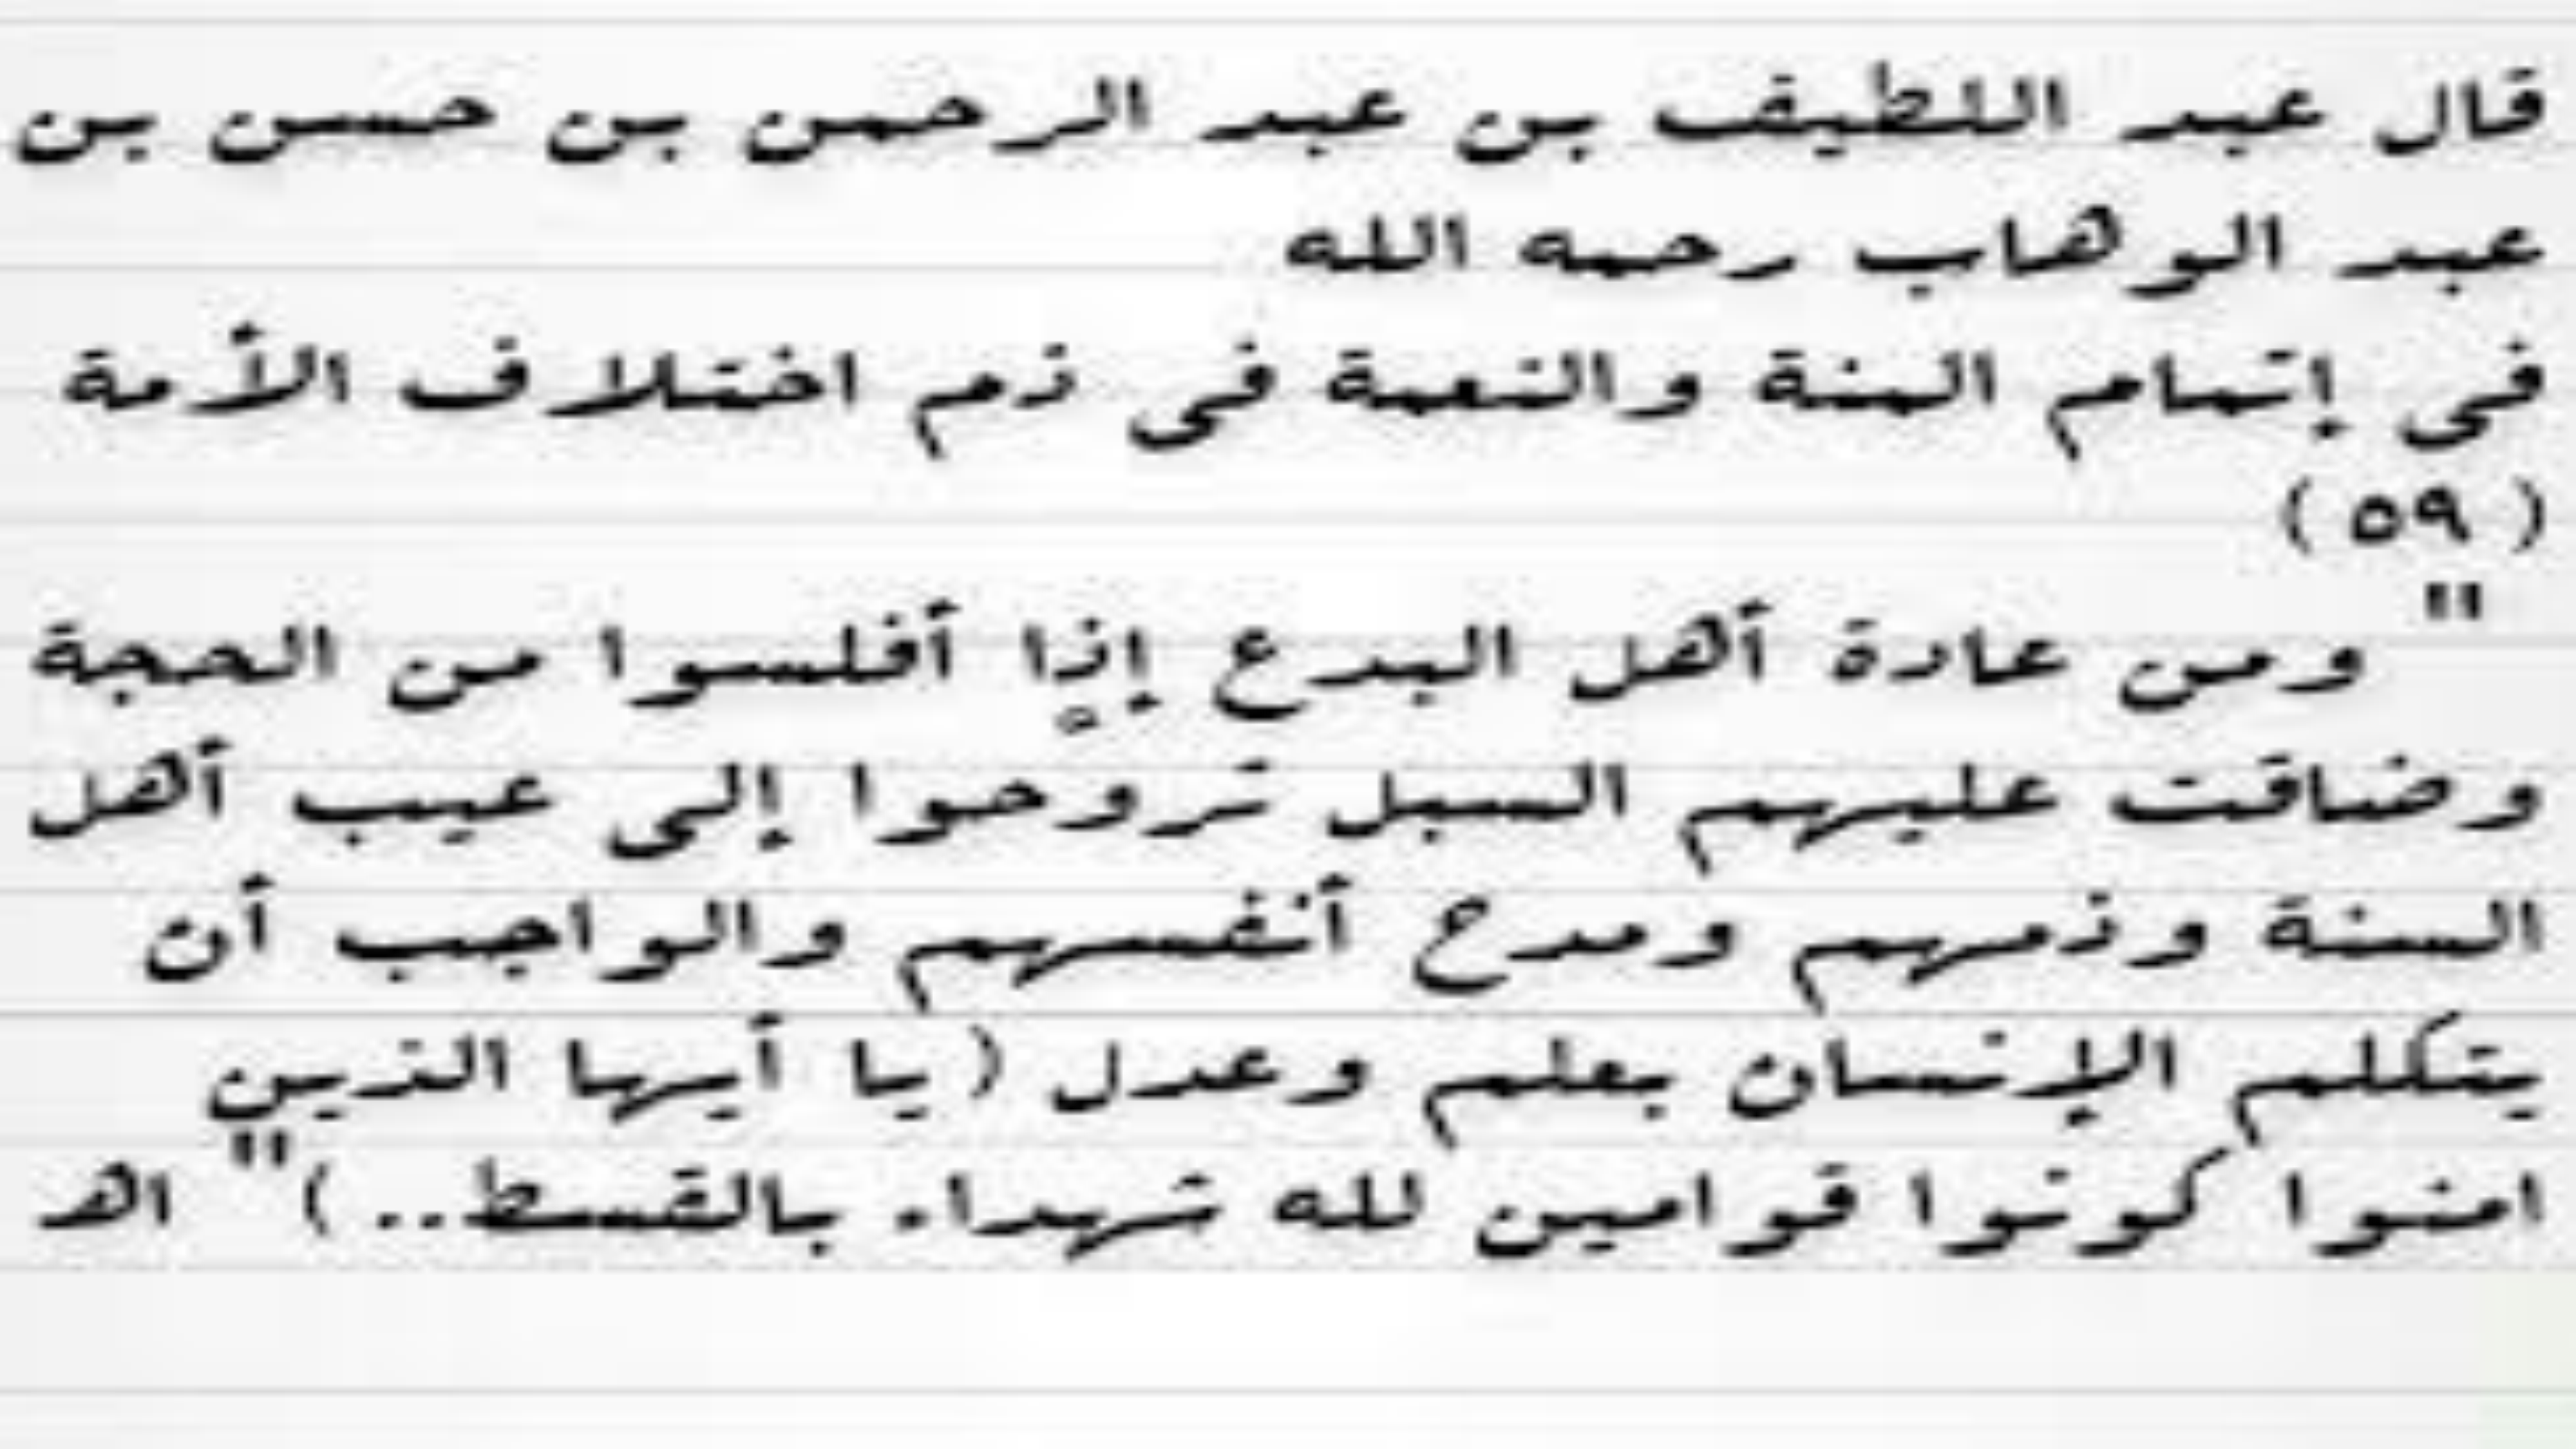 قال عبد اللطيف بن عبد الرحمن بن حسن بن
عبد الوهاب رحمه الله
في إتمام المنة والنعمة في ذم اختلاف الأمة
( ٥٩ )
" ومن عادة أهل البدع إذا أفلسوا من الحجة
وضاقت عليهم السبل تروحوا إلى عيب أهل
السنة وذمهم ومدح أنفسهم والواجب أن
يتكلم الإنسان بعلم وعدل ( يا أيها الذين
امنوا كونوا قوامين لله شهداء بالقسط.. )" اهـ